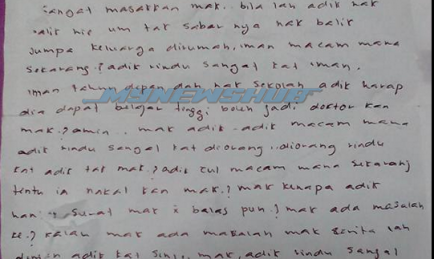 sangat masakkan mak.. bila lah adik nak
balik nie um tak sabar nya nak balik
jumpa keluarga dirumah, iman macam mana
sekarang? adik rindu sangat kat iman.
iman tahun depan dah nak sekolah adik harap
dia dapat belajar tinggi boleh jadi doktor kan
MYNEWSHUB
mak? amin.. mak adik-adik macam mana
adik rindu sangat kat diorang.. diorang rindu
kat adik tak mak? adik cul macam mana sekarang
tentu ia nakal kan mak? mak kenapa adik
surat mak x balas pun? mak ada masalah
ke? kalau mak ada masalah mak cerita lah
dengan adik kat sini. mak, adik rindu sangat